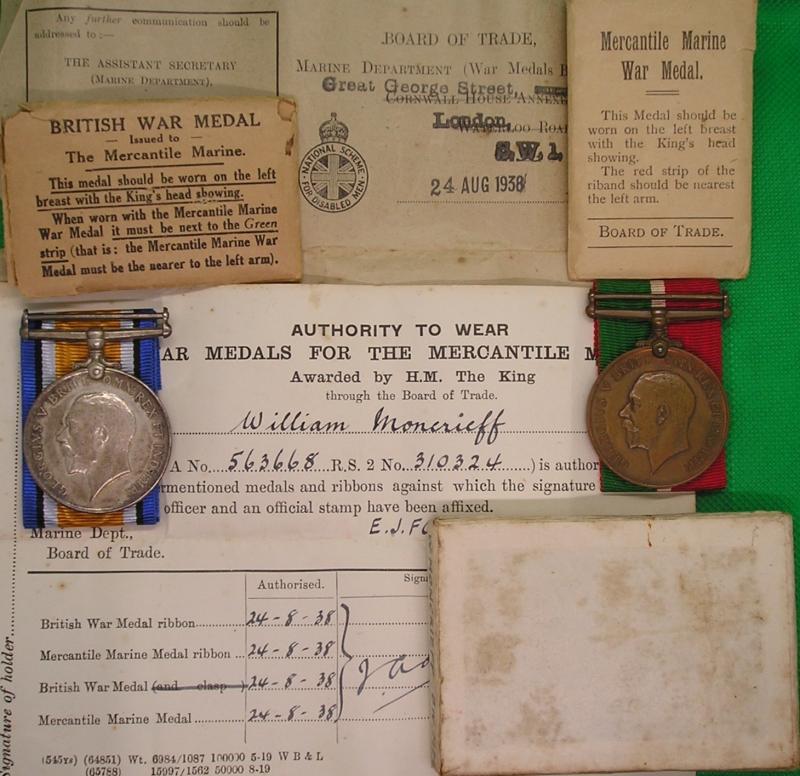 Any further communication should be
addressed to:—
THE ASSISTANT SECRETARY
(MARINE DEPARTMENT),
BOARD OF TRADE,
MARINE DEPARTMENT (War Medals
Great George Street,
CORNWALL HOUSE ANNEXE
London,
WATERLOO ROA
S.W.1.
24 AUG 1938
NATIONAL SCHEME
FOR DISABLED MEN
BRITISH WAR MEDAL
— Issued to —
The Mercantile Marine.
This medal should be worn on the left
breast with the King's head showing.
When worn with the Mercantile Marine
War Medal it must be next to the Green
strip (that is: the Mercantile Marine War
Medal must be the nearer to the left arm).
Mercantile Marine
War Medal.
This Medal should be
worn on the left breast
with the King's head
showing.
The red strip of the
riband should be nearest
the left arm.
BOARD OF TRADE.
AUTHORITY TO WEAR
AR MEDALS FOR THE MERCANTILE M
Awarded by H.M. The King
through the Board of Trade.
William Moncrieff
A No. 563668 R.S. 2 No. 310324 ) is author
rmentioned medals and ribbons against which the signature
officer and an official stamp have been affixed.
E.J.
Marine Dept.,
Board of Trade.
Authorised.
British War Medal ribbon 24-8-38
Mercantile Marine Medal ribbon 24-8-38
British War Medal (and clasp ) 24-8-38
Mercantile Marine Medal 24-8-38
Signature of holder
(545YS) (64851) Wt. 6984/1087 100000 5-19 W B & L
(65788) 15997/1562 50000 8-19